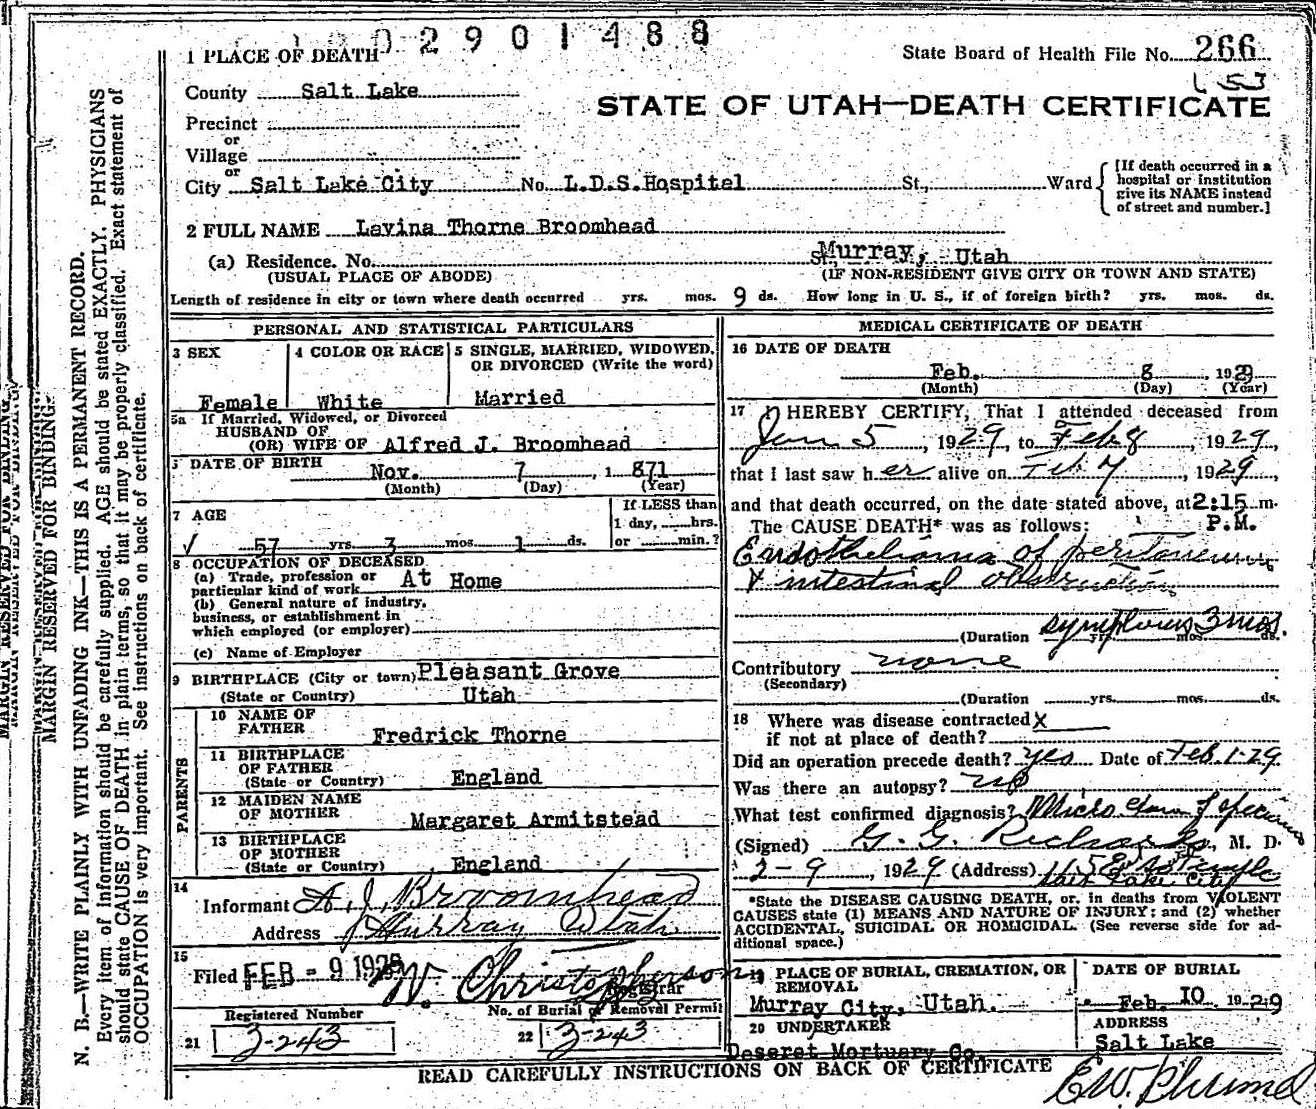 02901488
1 PLACE OF DEATH
State Board of Health File No. 266
County Salt Lake
L 53
STATE OF UTAH—DEATH CERTIFICATE
Precinct
or
Village
or
City Salt Lake City No. L.D.S. Hospital St., Ward
[If death occurred in a hospital or institution give its NAME instead of street and number.]
2 FULL NAME Lavina Thorne Broomhead
(a) Residence. No. St., Murray, Utah
(USUAL PLACE OF ABODE) (IF NON-RESIDENT GIVE CITY OR TOWN AND STATE)
Length of residence in city or town where death occurred yrs. mos. 9 ds. How long in U. S., if of foreign birth? yrs. mos. ds.
PERSONAL AND STATISTICAL PARTICULARS
3 SEX
Female
4 COLOR OR RACE
White
5 SINGLE, MARRIED, WIDOWED,
OR DIVORCED (Write the word)
Married
5a If Married, Widowed, or Divorced
HUSBAND OF
(OR) WIFE OF Alfred J. Broomhead
DATE OF BIRTH
Nov. 7, 1 871
(Month) (Day) (Year)
7 AGE
57 yrs. 3 mos. 1 ds.
If LESS than
1 day, hrs.
or min.?
8 OCCUPATION OF DECEASED
(a) Trade, profession or
particular kind of work At Home
(b) General nature of industry,
business, or establishment in
which employed (or employer)
(c) Name of Employer
9 BIRTHPLACE (City or town) Pleasant Grove
(State or Country) Utah
PARENTS
10 NAME OF
FATHER Fredrick Thorne
11 BIRTHPLACE
OF FATHER
(State or Country) England
12 MAIDEN NAME
OF MOTHER Margaret Armitstead
13 BIRTHPLACE
OF MOTHER
(State or Country) England
14
Informant A. J. Broomhead
Address Murray Utah
15
Filed FEB - 9 1929 W. Christopherson
Registrar
Registered Number
21 3-243
No. of Burial or Removal Permit
22 3-243
MEDICAL CERTIFICATE OF DEATH
16 DATE OF DEATH
Feb. 8, 1929
(Month) (Day) (Year)
17 I HEREBY CERTIFY, That I attended deceased from
Jan 5, 1929, to Feb 8, 1929,
that I last saw her alive on Feb 7, 1929,
and that death occurred, on the date stated above, at 2:15 m.
The CAUSE DEATH* was as follows: P.M.
Endothelioma of peritoneum
& intestinal obstruction
(Duration symptoms yrs. 3 mos. ds.
Contributory none
(Secondary)
(Duration yrs. mos. ds.
18 Where was disease contracted X
if not at place of death?
Did an operation precede death? yes Date of Feb. 1-29
Was there an autopsy? no
What test confirmed diagnosis? Micro Exam of specimen
(Signed) G. G. Richards, M. D.
2-9, 1929 (Address) 115 E So Temple
Salt Lake City
*State the DISEASE CAUSING DEATH, or, in deaths from VIOLENT
CAUSES state (1) MEANS AND NATURE OF INJURY: and (2) whether
ACCIDENTAL, SUICIDAL OR HOMICIDAL. (See reverse side for ad-
ditional space.)
19 PLACE OF BURIAL, CREMATION, OR
REMOVAL
Murray City, Utah.
DATE OF BURIAL
Feb. 10 1929
20 UNDERTAKER
Deseret Mortuary Co.
ADDRESS
Salt Lake
READ CAREFULLY INSTRUCTIONS ON BACK OF CERTIFICATE
MARGIN RESERVED FOR BINDING.
N. B.—WRITE PLAINLY WITH UNFADING INK—THIS IS A PERMANENT RECORD.
Every item of information should be carefully supplied. AGE should be stated EXACTLY. PHYSICIANS
should state CAUSE OF DEATH in plain terms, so that it may be properly classified. Exact statement of
OCCUPATION is very important. See instructions on back of certificate.